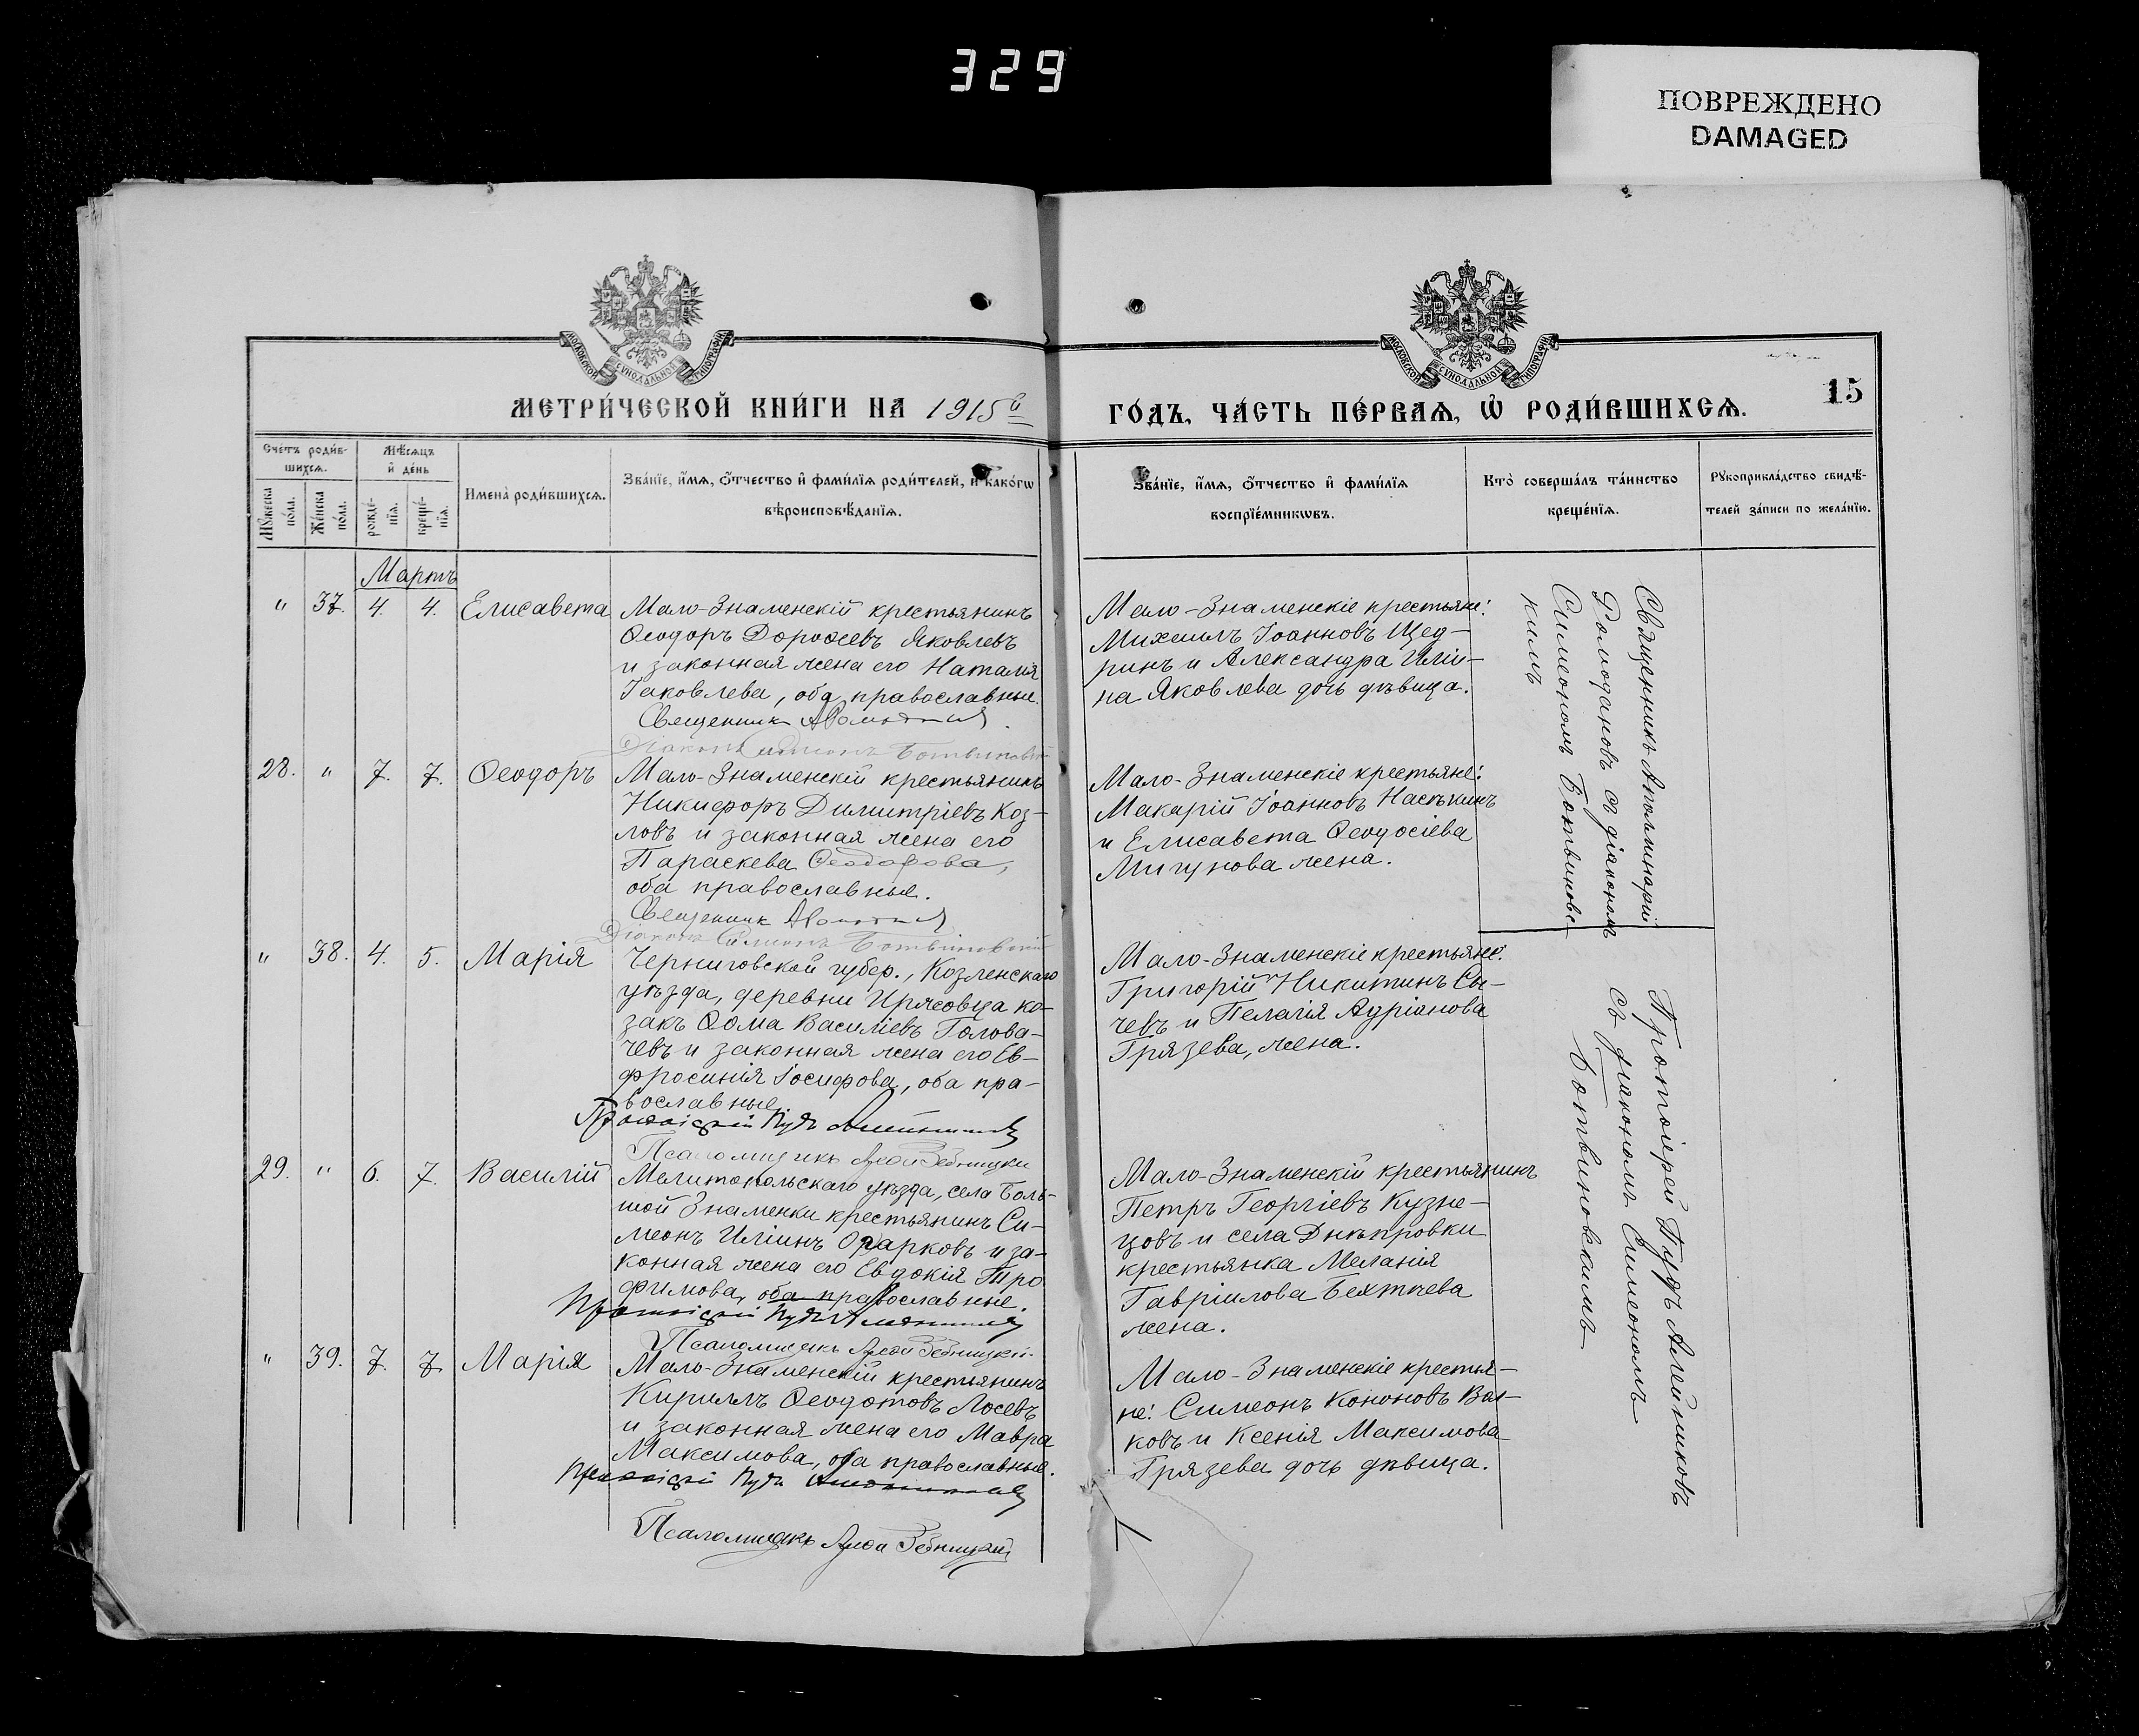 329
ПОВРЕЖДЕНО
DAMAGED
МОСКОВСКОЙ СѴНОДАЛЬНОЙ ТИПОГРАФІИ
МОСКОВСКОЙ СѴНОДАЛЬНОЙ ТИПОГРАФІИ
МЕТРИ́ЧЕСКОЙ КНИ́ГИ НА 1915й
ГО́ДЪ, ЧА́СТЬ ПЕ́РВАѦ, Ѡ҆ РОДИ́ВШИХСѦ.
15
Сче́тъ роди́в-
шихсѧ.
Мꙋжеска по́ла.
Же́нска по́ла.
Мѣ́сѧцъ
и҆ де́нь
рожде́-
нїѧ.
креще́-
нїѧ.
Имена̀ роди́вшихсѧ.
Зва́нїе, и҆́мѧ, ѻ҆́тчество и҆ фами́лїѧ роди́телей, и҆ како́гѡ
вѣроисповѣ́данїѧ.
Зва́нїе, и҆́мѧ, ѻ҆́тчество и҆ фами́лїѧ
воспрїе́мникѡвъ.
Кто̀ соверша́лъ та́инство
креще́нїѧ.
Рꙋкоприкла́дство свидѣ́-
телей за́писи по жела́нїю.
Мартъ
" 37. 4. 4. Елисавета
Мало-Знаменскій крестьянинъ
Ѳеодоръ Дороѳеевъ Яковлевъ
и законная жена его Наталія
Іаковлева, оба православные.
Священникъ
Діаконъ Симеонъ Ботвиновскій
Мало-Знаменскіе крестьяне:
Михаилъ Іоанновъ Щед-
ринъ и Александра Иліи-
на Яковлева дочь дѣвица.
Священникъ Аполлинарій
Домодановъ съ діакономъ
Симеономъ Ботвиновс-
кимъ
28. " 7. 7. Ѳеодоръ
Мало-Знаменскій крестьянинъ
Никифоръ Димитріевъ Коз-
ловъ и законная жена его
Параскева Ѳеодорова,
оба православные.
Священникъ
Діаконъ Симеонъ Ботвиновскій
Мало-Знаменскіе крестьяне:
Макарій Іоанновъ Насѣкинъ
и Елисавета Ѳеодосіева
Мигунова жена.
" 38. 4. 5. Марія
Черниговской губер., Козленскаго
уѣзда, деревни ко-
закъ Ѳома Василіевъ Голова-
чевъ и законная жена его Ев-
фросинія Іосифова, оба пра-
вославные.
Протоіерей Пудъ Алейниковъ
Псаломщикъ
Мало-Знаменскіе крестьяне:
Григорій Никитинъ Сы-
чевъ и Пелагія Адріанова
Грязева, жена.
Протоіерей Пудъ Алейниковъ
съ діакономъ Симеономъ
Ботвиновскимъ
29. " 6. 7. Василій
Мелитопольскаго уѣзда, села Боль-
шой Знаменки крестьянинъ Си-
меонъ Иліинъ и за-
конная жена его Евдокія Тро
фимова, оба православные.
Протоіерей Пудъ Алейниковъ
Псаломщикъ
Мало-Знаменскій крестьянинъ
Петръ Георгіевъ Кузне-
цовъ и села Днѣпровки
крестьянка Меланія
Гавріилова Бехтѣева
жена.
" 39. 7. 7. Марія
Мало-Знаменскій крестьянинъ
Кириллъ Ѳеодотовъ Лосевъ
и законная жена его Мавра
Максимова, оба православные.
Протоіерей Пудъ Алейниковъ
Псаломщикъ
Мало-Знаменскіе крестья-
не: Симеонъ Кононовъ Вол-
ковъ и Ксенія Максимова
Грязева дочь дѣвица.